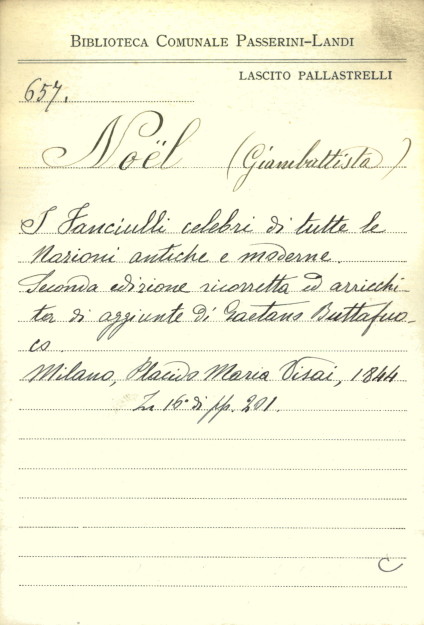 BIBLIOTECA COMUNALE PASSERINI-LANDI
LASCITO PALLASTRELLI
657.
Noël (Giambattista)
I Fanciulli celebri di tutte le
Nazioni antiche e moderne.
Seconda edizione ricorretta ed arricchi-
ta di aggiunte di Gaetano Buttafuo-
co.
Milano, Placido Maria Visai, 1844
In 16° di pp. 201.
C